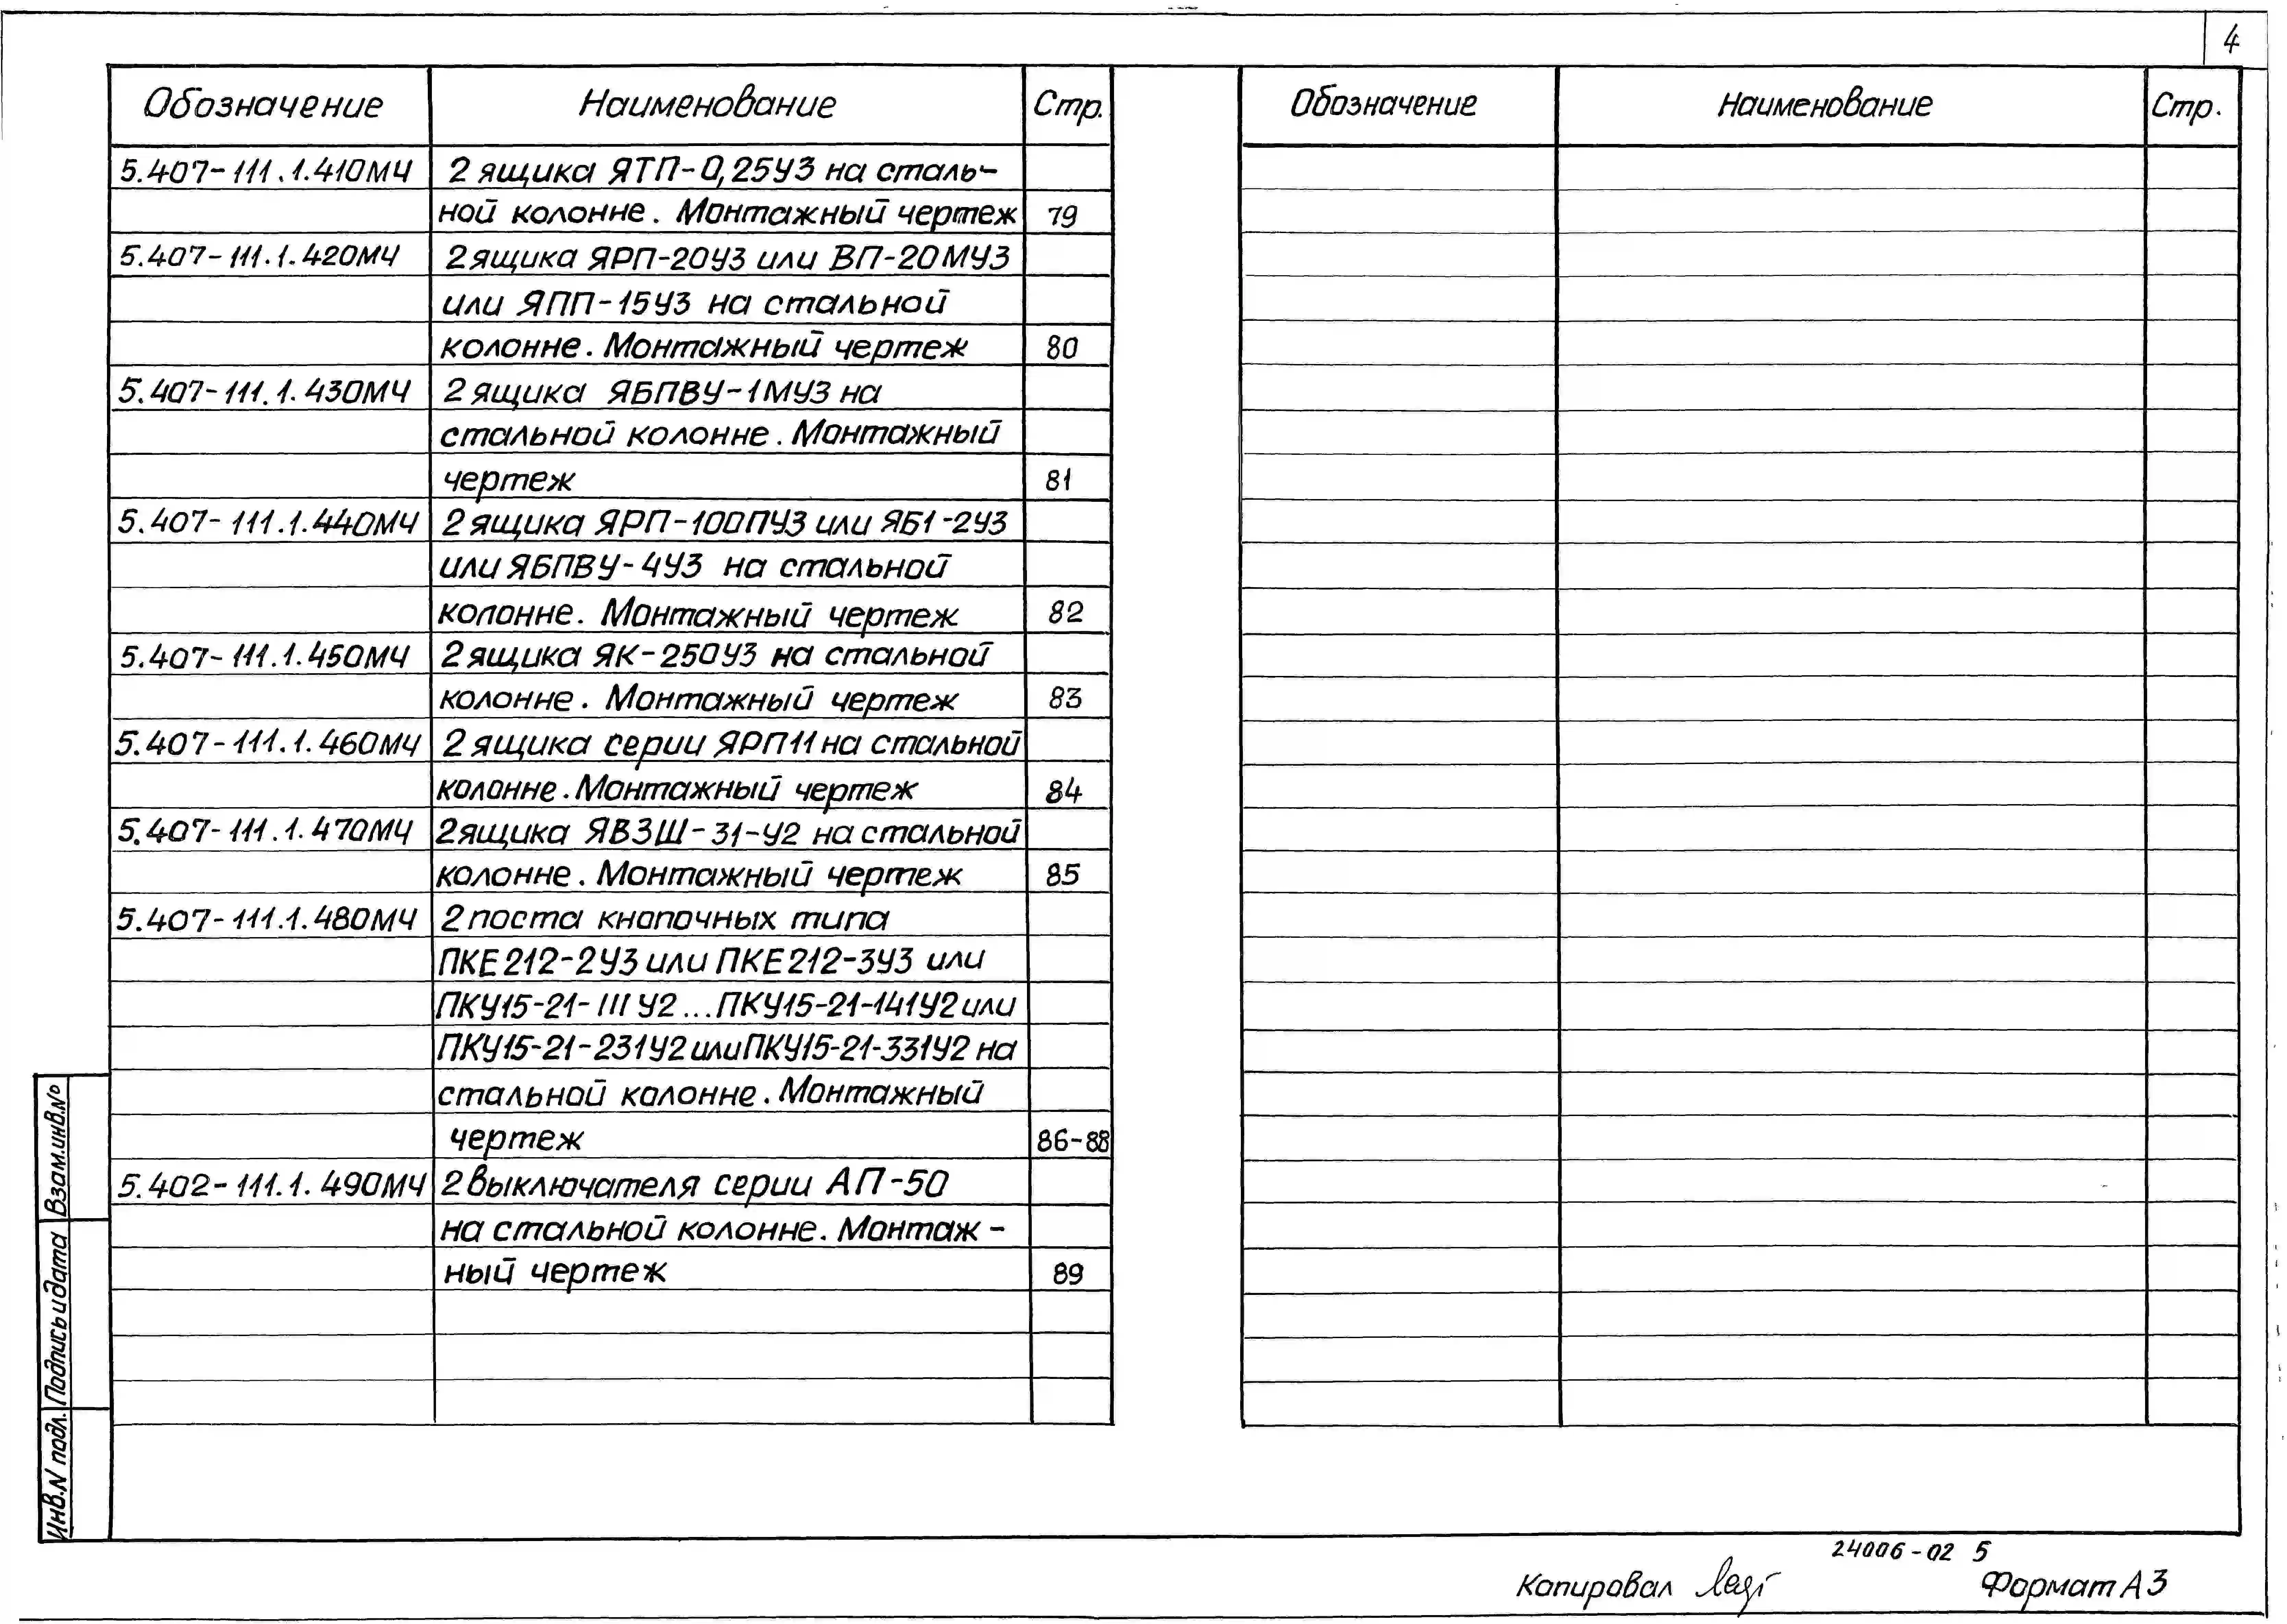 4
Обозначение Наименование Стр.
5.407-111.1.410МЧ 2 ящика ЯТП-0,25У3 на сталь-
ной колонне. Монтажный чертеж 79
5.407-111.1.420МЧ 2 ящика ЯРП-20У3 или ВП-20МУ3
или ЯПП-15У3 на стальной
колонне. Монтажный чертеж 80
5.407-111.1.430МЧ 2 ящика ЯБПВУ-1МУ3 на
стальной колонне. Монтажный
чертеж 81
5.407-111.1.440МЧ 2 ящика ЯРП-100ПУ3 или ЯБ1-2У3
или ЯБПВУ-4У3 на стальной
колонне. Монтажный чертеж 82
5.407-111.1.450МЧ 2 ящика ЯК-250У3 на стальной
колонне. Монтажный чертеж 83
5.407-111.1.460МЧ 2 ящика серии ЯРП11 на стальной
колонне. Монтажный чертеж 84
5.407-111.1.470МЧ 2 ящика ЯВЗШ-31-У2 на стальной
колонне. Монтажный чертеж 85
5.407-111.1.480МЧ 2 поста кнопочных типа
ПКЕ212-2У3 или ПКЕ212-3У3 или
ПКУ15-21-111У2...ПКУ15-21-141У2 или
ПКУ15-21-231У2 или ПКУ15-21-331У2 на
стальной колонне. Монтажный
чертеж 86-88
5.402-111.1.490МЧ 2 выключателя серии АП-50
на стальной колонне. Монтаж-
ный чертеж 89
Обозначение Наименование Стр.
Взам.инв.№
Подпись и дата
Инв.N подл.
24006-02 5
Копировал Формат А3